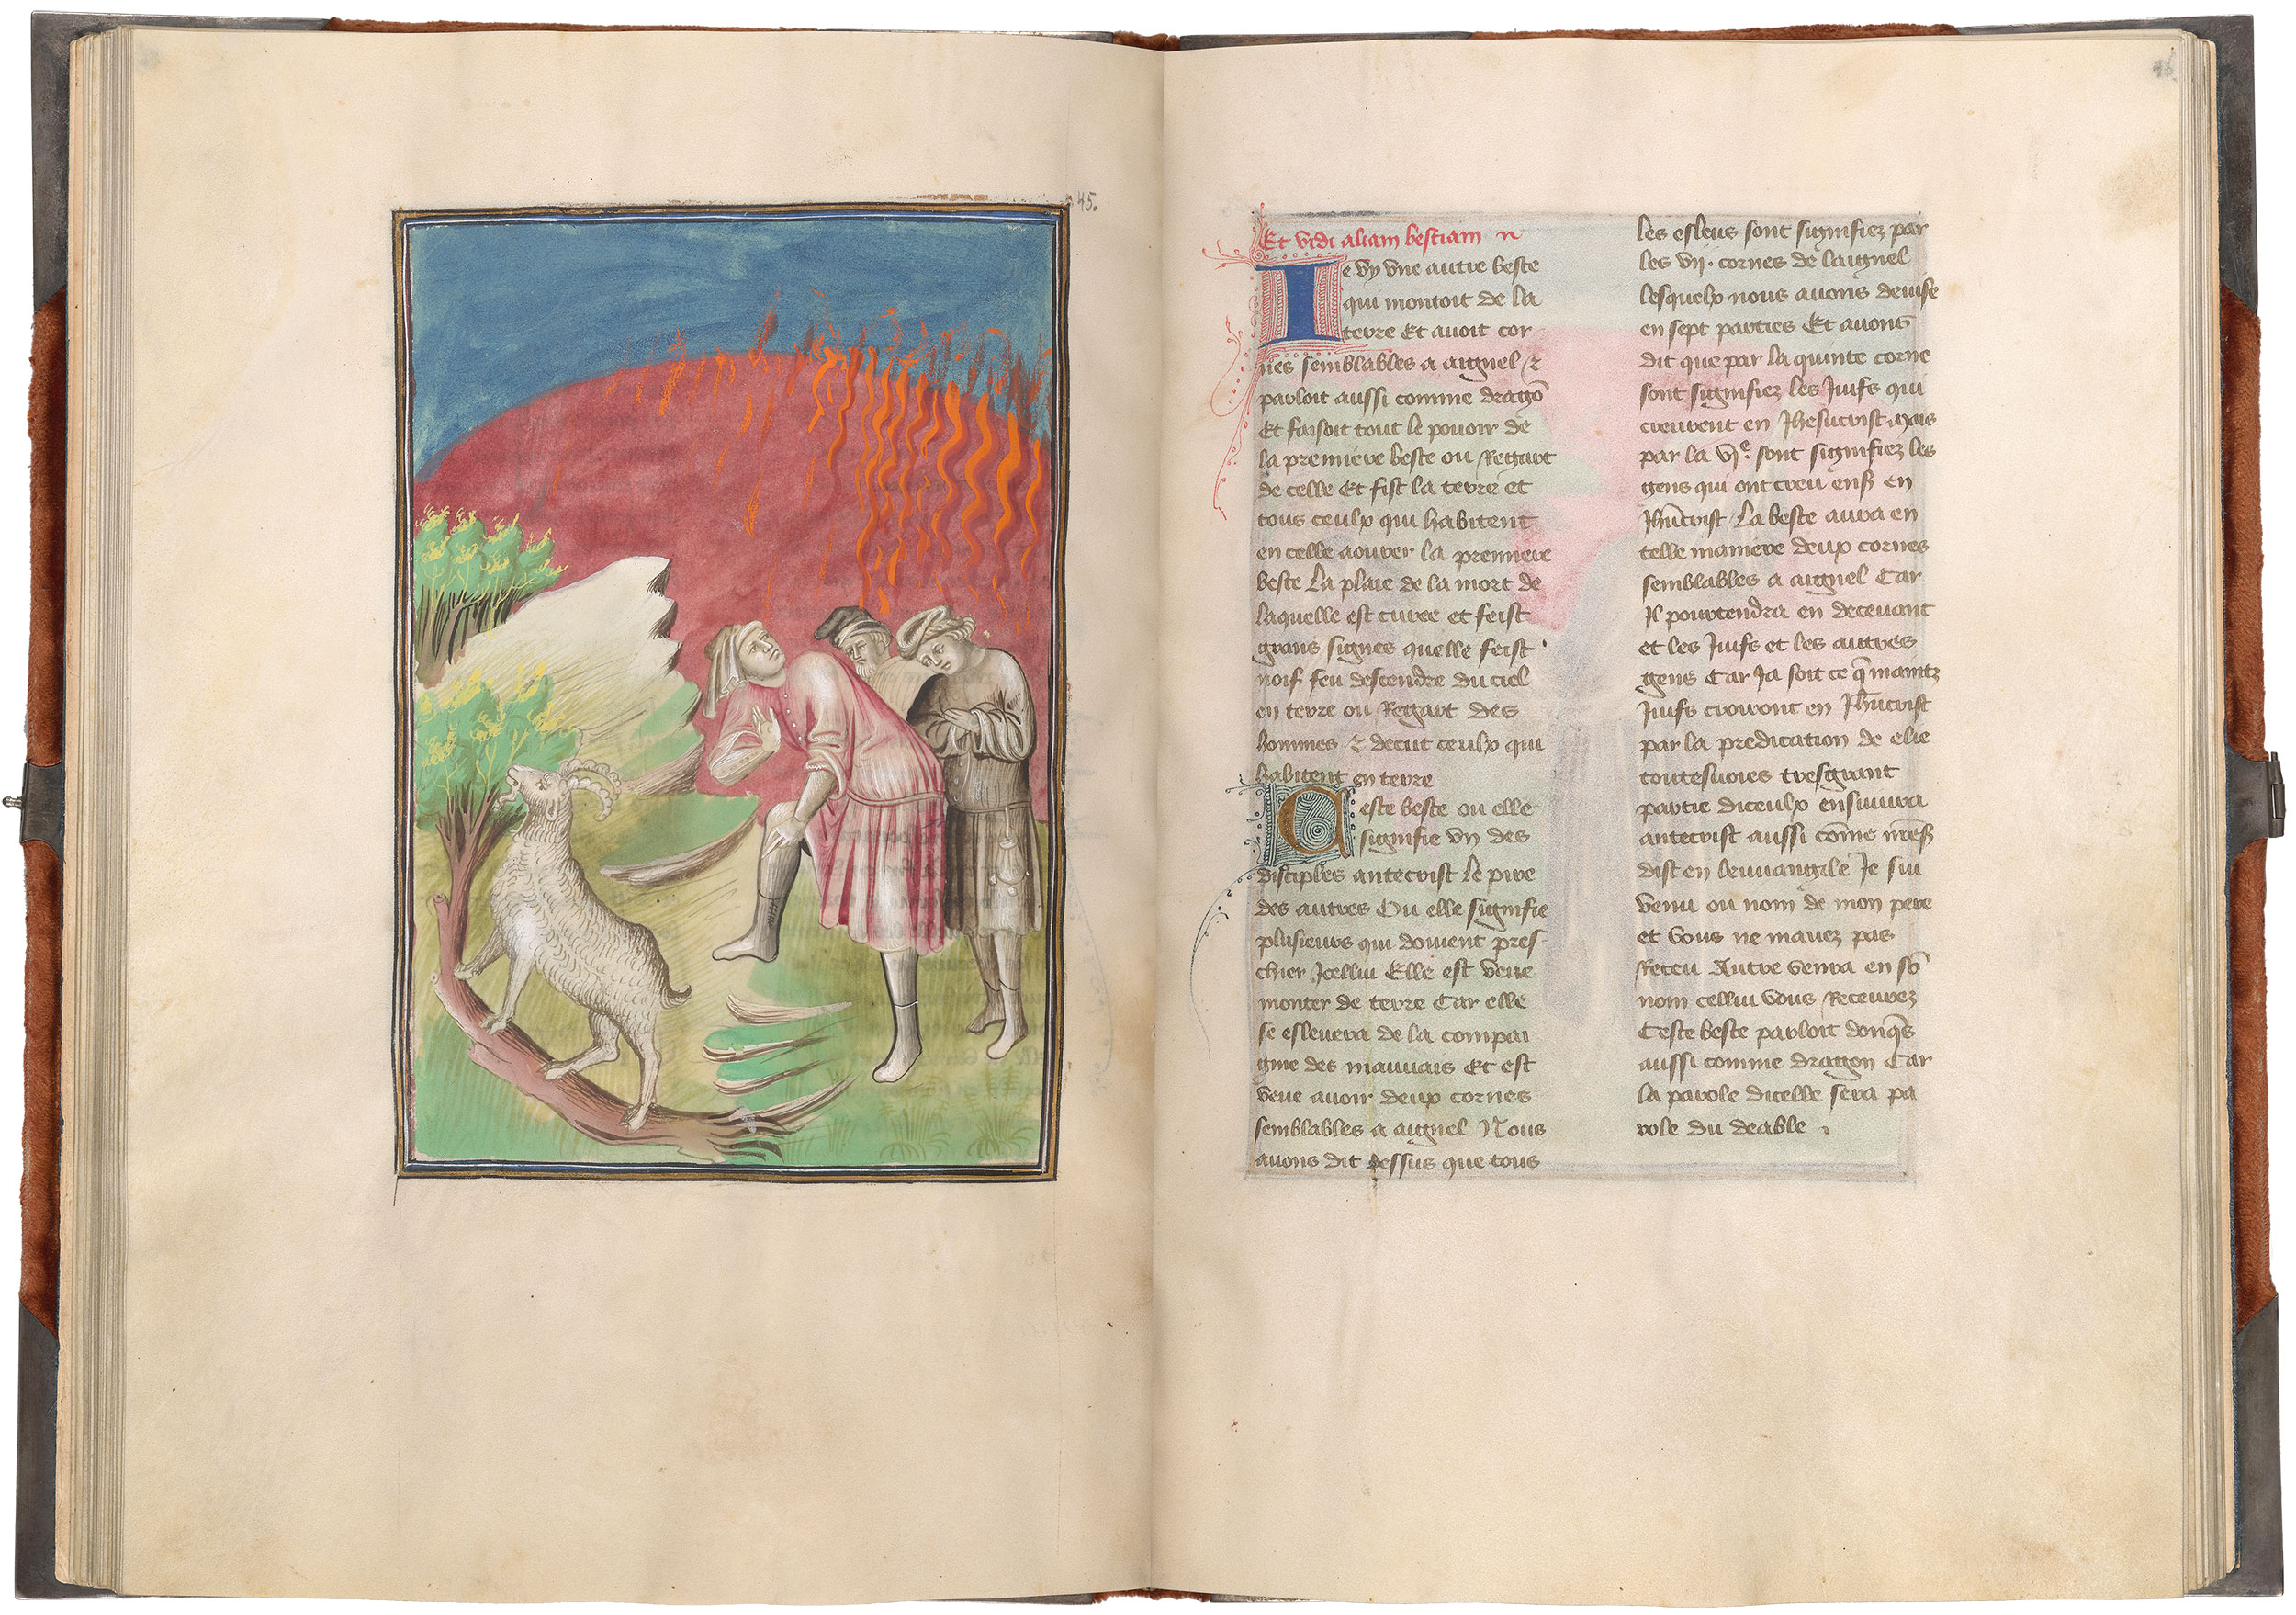 45.
46
Et vidi aliam bestiam
Ie vy vne autre beste
qui montoit de la
terre Et auoit cor
nes semblables a aignel ⁊
parloit aussi comme dragõ
Et faisoit tout le pouoir de
la premiere beste ou Regart
de celle Et fist la terre et
tous ceulx qui habitent
en celle aourer la premiere
beste La plaie de la mort de
laquelle est curee et feist
grans signes quelle feist
feu descendre du ciel
en terre ou Regart des
hommes ⁊ decut ceulx qui
habitent en terre
Ceste beste ou elle
signifie vn des
disciples antecrist le pire
des autres Ou elle signifie
plusieurs qui doiuent pres
chier Icellui Elle est veue
monter de terre Car elle
se esleuera de la compai
gnie des mauuais Et est
veue auoir deux cornes
semblables a aignel Nous
auons dit dessus que tous
les esleus sont signifiez par
les vij. cornes de laignel
lesquelx nous auons deuise
en sept parties Et auons
dit que par la quinte corne
sont signifiez les Juifs qui
creurent en Jhesucrist mais
par la vjᵉ. sont signifiez les
gens qui ont creu en
Jhũcrist La beste aura en
telle maniere deux cornes
semblables a aignel Car
Il pourtendra en deceuant
et les Juifs et les autres
gens Car Ja soit ce q̃ maintz
Juifs croiront en Jhũcrist
par la predication de elie
toutesuoies tresgrant
partie diceulx ensuiura
antecrist aussi cõme
dist en leuuangile Je sui
venu ou nom de mon pere
et vous ne mauez pas
Receu Autre venra en sõ
nom cellui vous Receurez
Ceste beste parloit donq̃s
aussi comme dragon Car
la parole dicelle sera pa
role du deable